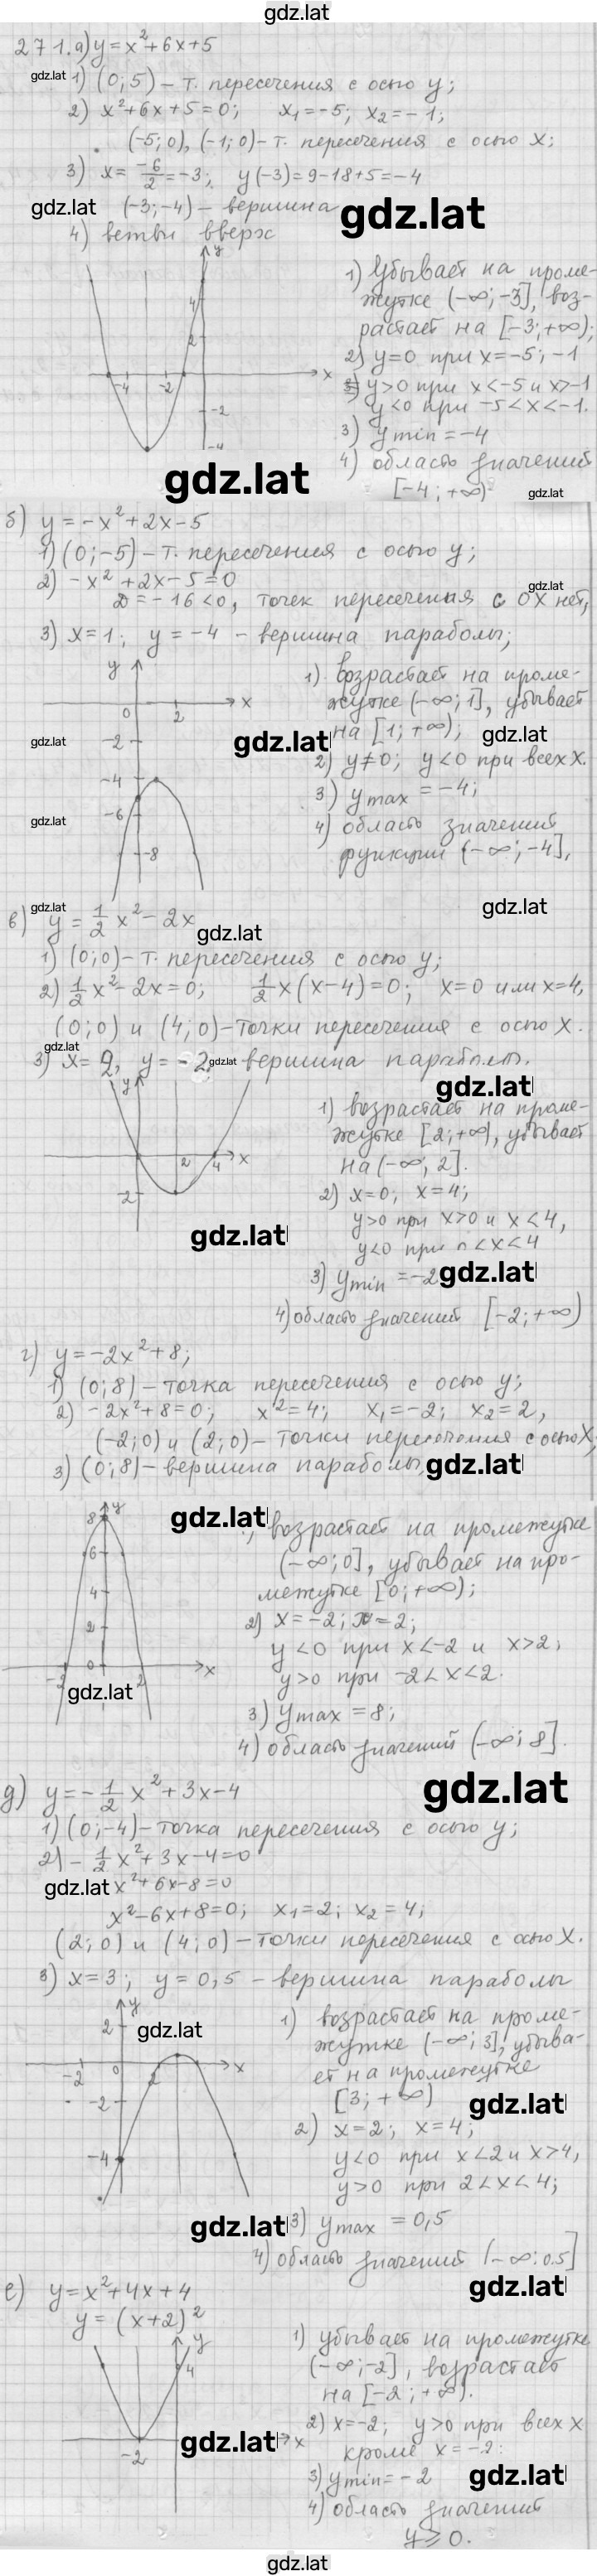 gdz.lat
271. а) y = x² + 6x + 5
gdz.lat 1) (0; 5) – т. пересечения с осью y;
2) x² + 6x + 5 = 0; x₁ = -5; x₂ = -1;
(-5; 0), (-1; 0) – т. пересечения с осью x;
3) x = -6/2 = -3; y(-3) = 9 - 18 + 5 = -4
gdz.lat (-3; -4) – вершина gdz.lat
4) ветви вверх
y
4
2
x
-4 -2
-2
-4
1) Убывает на проме-
жутке (-∞; -3], воз-
растает на [-3; +∞);
2) y = 0 при x = -5; -1
y > 0 при x < -5 и x > -1
y < 0 при -5 < x < -1.
3) y min = -4
4) область значений
[-4; +∞)
gdz.lat gdz.lat
б) y = -x² + 2x - 5
1) (0; -5) – т. пересечения с осью y;
2) -x² + 2x - 5 = 0
gdz.lat
D = -16 < 0, точек пересечения с OX нет;
3) x = 1; y = -4 – вершина параболы;
y
x
0 2
-2
-4
-6
-8
gdz.lat
gdz.lat
1) возрастает на проме-
жутке (-∞; 1], убывает
на [1; +∞);
gdz.lat gdz.lat
2) y ≠ 0; y < 0 при всех x.
3) y max = -4;
4) область значений
функции (-∞; -4],
gdz.lat gdz.lat
в) y = 1/2 x² - 2x
gdz.lat
1) (0; 0) – т. пересечения с осью y;
2) 1/2 x² - 2x = 0; 1/2 x (x - 4) = 0; x = 0 или x = 4,
(0; 0) и (4; 0) – точки пересечения с осью X.
gdz.lat
3) x = 2, y = -2 gdz.lat вершина параболы.
y
x
2 4
-2
gdz.lat
1) возрастает на проме-
жутке [2; +∞), убывает
на (-∞; 2].
2) x = 0; x = 4;
y > 0 при x > 0 и x < 4,
y < 0 при 0 < x < 4
gdz.lat
3) y min = -2 gdz.lat
4) область значений [-2; +∞)
г) y = -2x² + 8;
1) (0; 8) – точка пересечения с осью y;
2) -2x² + 8 = 0; x² = 4; x₁ = -2; x₂ = 2,
(-2; 0) и (2; 0) – точки пересечения с осью X,
3) (0; 8) – вершина параболы, gdz.lat
y
8
6
4
2
0
-2 2
x
gdz.lat
gdz.lat
возрастает на промежутке
(-∞; 0], убывает на про-
межутке [0; +∞);
2) x = -2; x = 2;
y < 0 при x < -2 и x > 2,
y > 0 при -2 < x < 2.
3) y max = 8;
4) область значений (-∞; 8].
gdz.lat
д) y = -1/2 x² + 3x - 4
1) (0; -4) – точка пересечения с осью y;
2) -1/2 x² + 3x - 4 = 0
gdz.lat x² + 6x - 8 = 0
x² - 6x + 8 = 0; x₁ = 2; x₂ = 4;
(2; 0) и (4; 0) – точки пересечения с осью X.
3) x = 3; y = 0,5 – вершина параболы
y
2
gdz.lat
-2 0 2
x
-2
-4
1) возрастает на проме-
жутке (-∞; 3], убыва-
ет на промежутке
[3; +∞)
gdz.lat
2) x = 2; x = 4;
y < 0 при x < 2 и x > 4,
y > 0 при 2 < x < 4;
gdz.lat 3) y max = 0,5
4) область значений (-∞; 0.5]
gdz.lat
е) y = x² + 4x + 4
y = (x + 2)²
y
4
-2
x
gdz.lat
1) убывает на промежутке
(-∞; -2], возрастает
на [-2; +∞).
2) x = -2; y > 0 при всех x
кроме x = -2.
3) y min = -2 gdz.lat
4) область значений
y ≥ 0.
gdz.lat